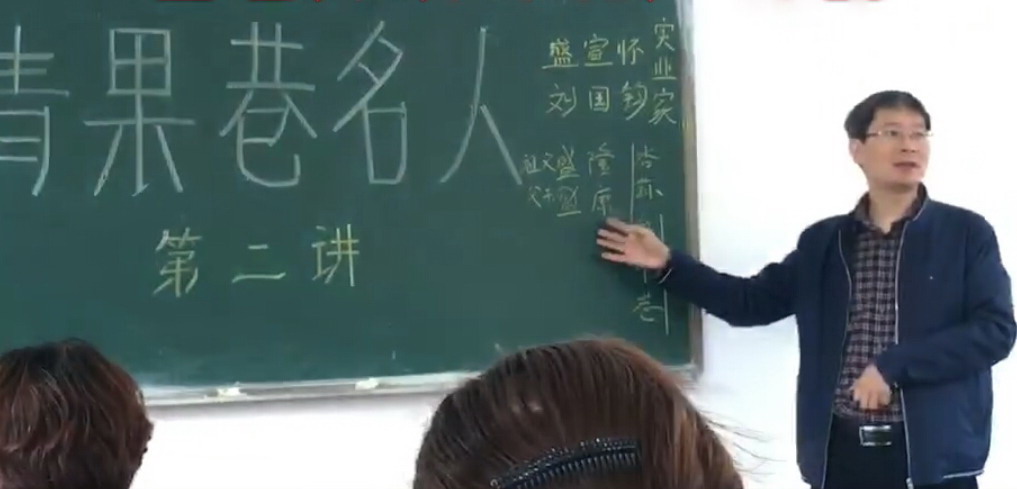 青果巷名人
第二讲
实业家
盛宣怀
刘国钧
祖父盛隆
父亲盛康